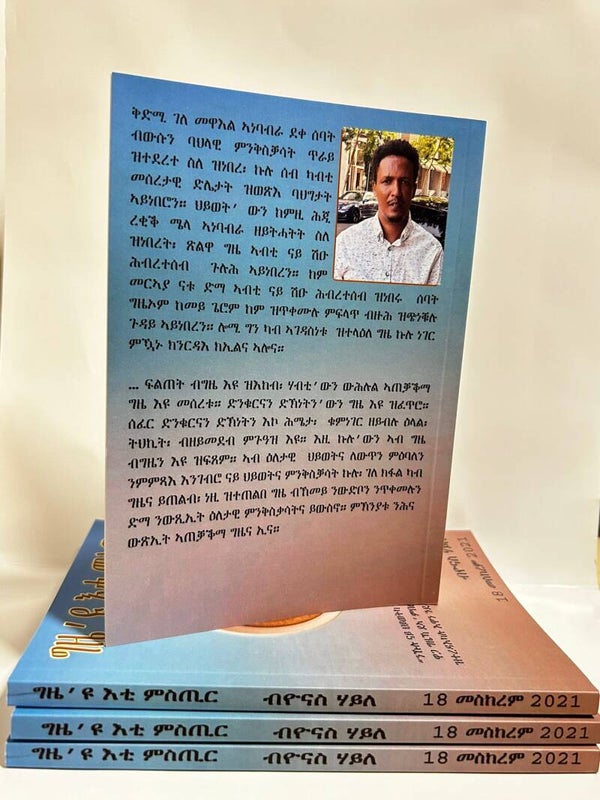 ቅድሚ ገለ መዋእል ኣነባብራ ደቀ ሰባት
ብውሱን ባህላዊ ምንቅስቓሳት ጥራይ
ዝተደረተ ስለ ዝነበረ፡ ኩሉ ሰብ ካብቲ
መሰረታዊ ድሌታት ዝወጽእ ባህግታት
ኣይነበሮን። ህይወት' ውን ከምዚ ሕጂ
ረቂቅ ሜላ ኣነባብራ ዘይትሓትት ስለ
ዝነበረት፡ ጽልዋ ግዜ ኣብቲ ናይ ሽዑ
ሕብረተሰብ ጉሉሕ ኣይነበረን። ከም
መርኣያ ናቱ ድማ ኣብቲ ናይ ሽዑ ሕብረተሰብ ዝነበሩ ሰባት
ግዜኦም ከመይ ጌሮም ከም ዝጥቀሙሉ ምፍላጥ ብዙሕ ዝጭነቑሉ
ጉዳይ ኣይነበረን። ሎሚ ግን ካብ ኣገዳስነቱ ዝተላዕለ ግዜ ኩሉ ነገር
ምዃኑ ክንርዳእ ክኢልና ኣሎና።
... ፍልጠት ብግዜ እዩ ዝእከብ፡ ሃብቲ'ውን ውሕሉል ኣጠቓቕማ
ግዜ እዩ መሰረቱ። ድንቁርናን ድኽነትን'ውን ግዜ እዩ ዝፈጥሮ።
ሰፈር ድንቁርናን ድኽነትን እኮ ሕሜታ፡ ቁምነገር ዘይብሉ ዕላል፡
ትህኪት፡ ብዘይመደብ ምጉዓዝ እዩ። እዚ ኩሉ'ውን ኣብ ግዜ
ብግዜን እዩ ዝፍጸም። ኣብ ዕለታዊ ህይወትና ለውጥን ምዕባለን
ንምምጻእ እንገብሮ ናይ ህይወትና ምንቅስቓሳት ኩሉ፡ ገለ ክፋል ካብ
ግዜና ይጠልብ፡ ነዚ ዝተጠልበ ግዜ ብኸመይ ንውድቦን ንጥቀመሉን
ድማ ንውጺኢት ዕለታዊ ምንቅስቃሳትና ይውስኖ። ምኽንያቱ ንሕና
ውጽኢት ኣጠቓቕማ ግዜና ኢና።
ግዜ'ዩ እቲ ምስጢር ብዮናስ ሃይለ 18 መስከረም 2021
ግዜ'ዩ እቲ ምስጢር ብዮናስ ሃይለ 18 መስከረም 2021
ግዜ'ዩ እቲ ምስጢር ብዮናስ ሃይለ 18 መስከረም 2021